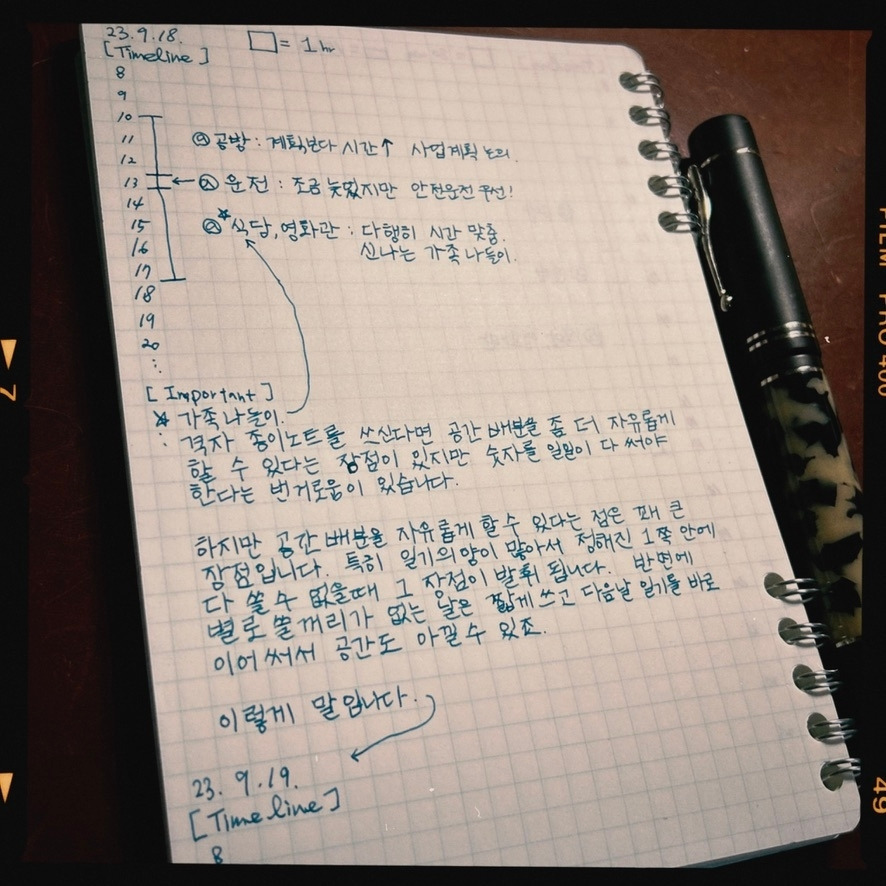 23.9.18. □ = 1 hr
[Timeline]
8
9
10
11 공방 : 계획보다 시간↑ 사업계획 논의.
12
13 ← 운전 : 조금 늦었지만 안전운전 우선!
14
15 ☆식당, 영화관 : 다행히 시간 맞춤.
16 신나는 가족 나들이.
17
18
19
20
⋮
[Important]
☆ 가족 나들이.
: 격자 종이노트를 쓰신다면 공간 배분을 좀 더 자유롭게
할 수 있다는 장점이 있지만 숫자를 일일이 다 써야
한다는 번거로움이 있습니다.
하지만 공간 배분을 자유롭게 할 수 있다는 점은 꽤 큰
장점입니다. 특히 일기의 양이 많아서 정해진 1쪽 안에
다 쓸 수 없을때 그 장점이 발휘 됩니다. 반면에
별로 쓸 꺼리가 없는 날은 짧게 쓰고 다음날 일기를 바로
이어 써서 공간도 아낄 수 있죠.
이렇게 말입니다.
23. 9. 19.
[Timeline]
8
FILM PRO 400
7
49